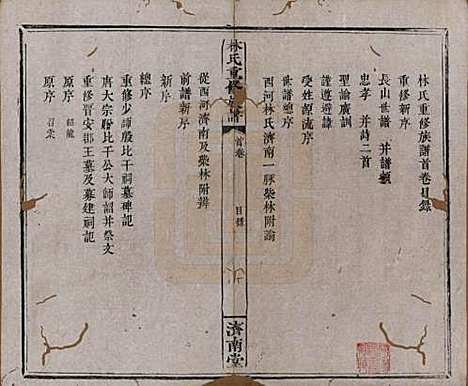 林氏重修族譜首卷目錄
重修新序
長山世譜 并譜贊
忠孝 并詩二首
聖諭廣訓
謹遵避諱
受姓源流序
世譜總序
西河林氏濟南一脉柴林附論
林氏重修族譜
首卷
目錄
濟南堂
從西河濟南及柴林附辨
前譜新序
新序
總序
重修少師殷比干祠墓碑記
唐太宗贈比干公太師詔并祭文
重修晉安郡王墓及募建祠記
原序 紹龍
原序